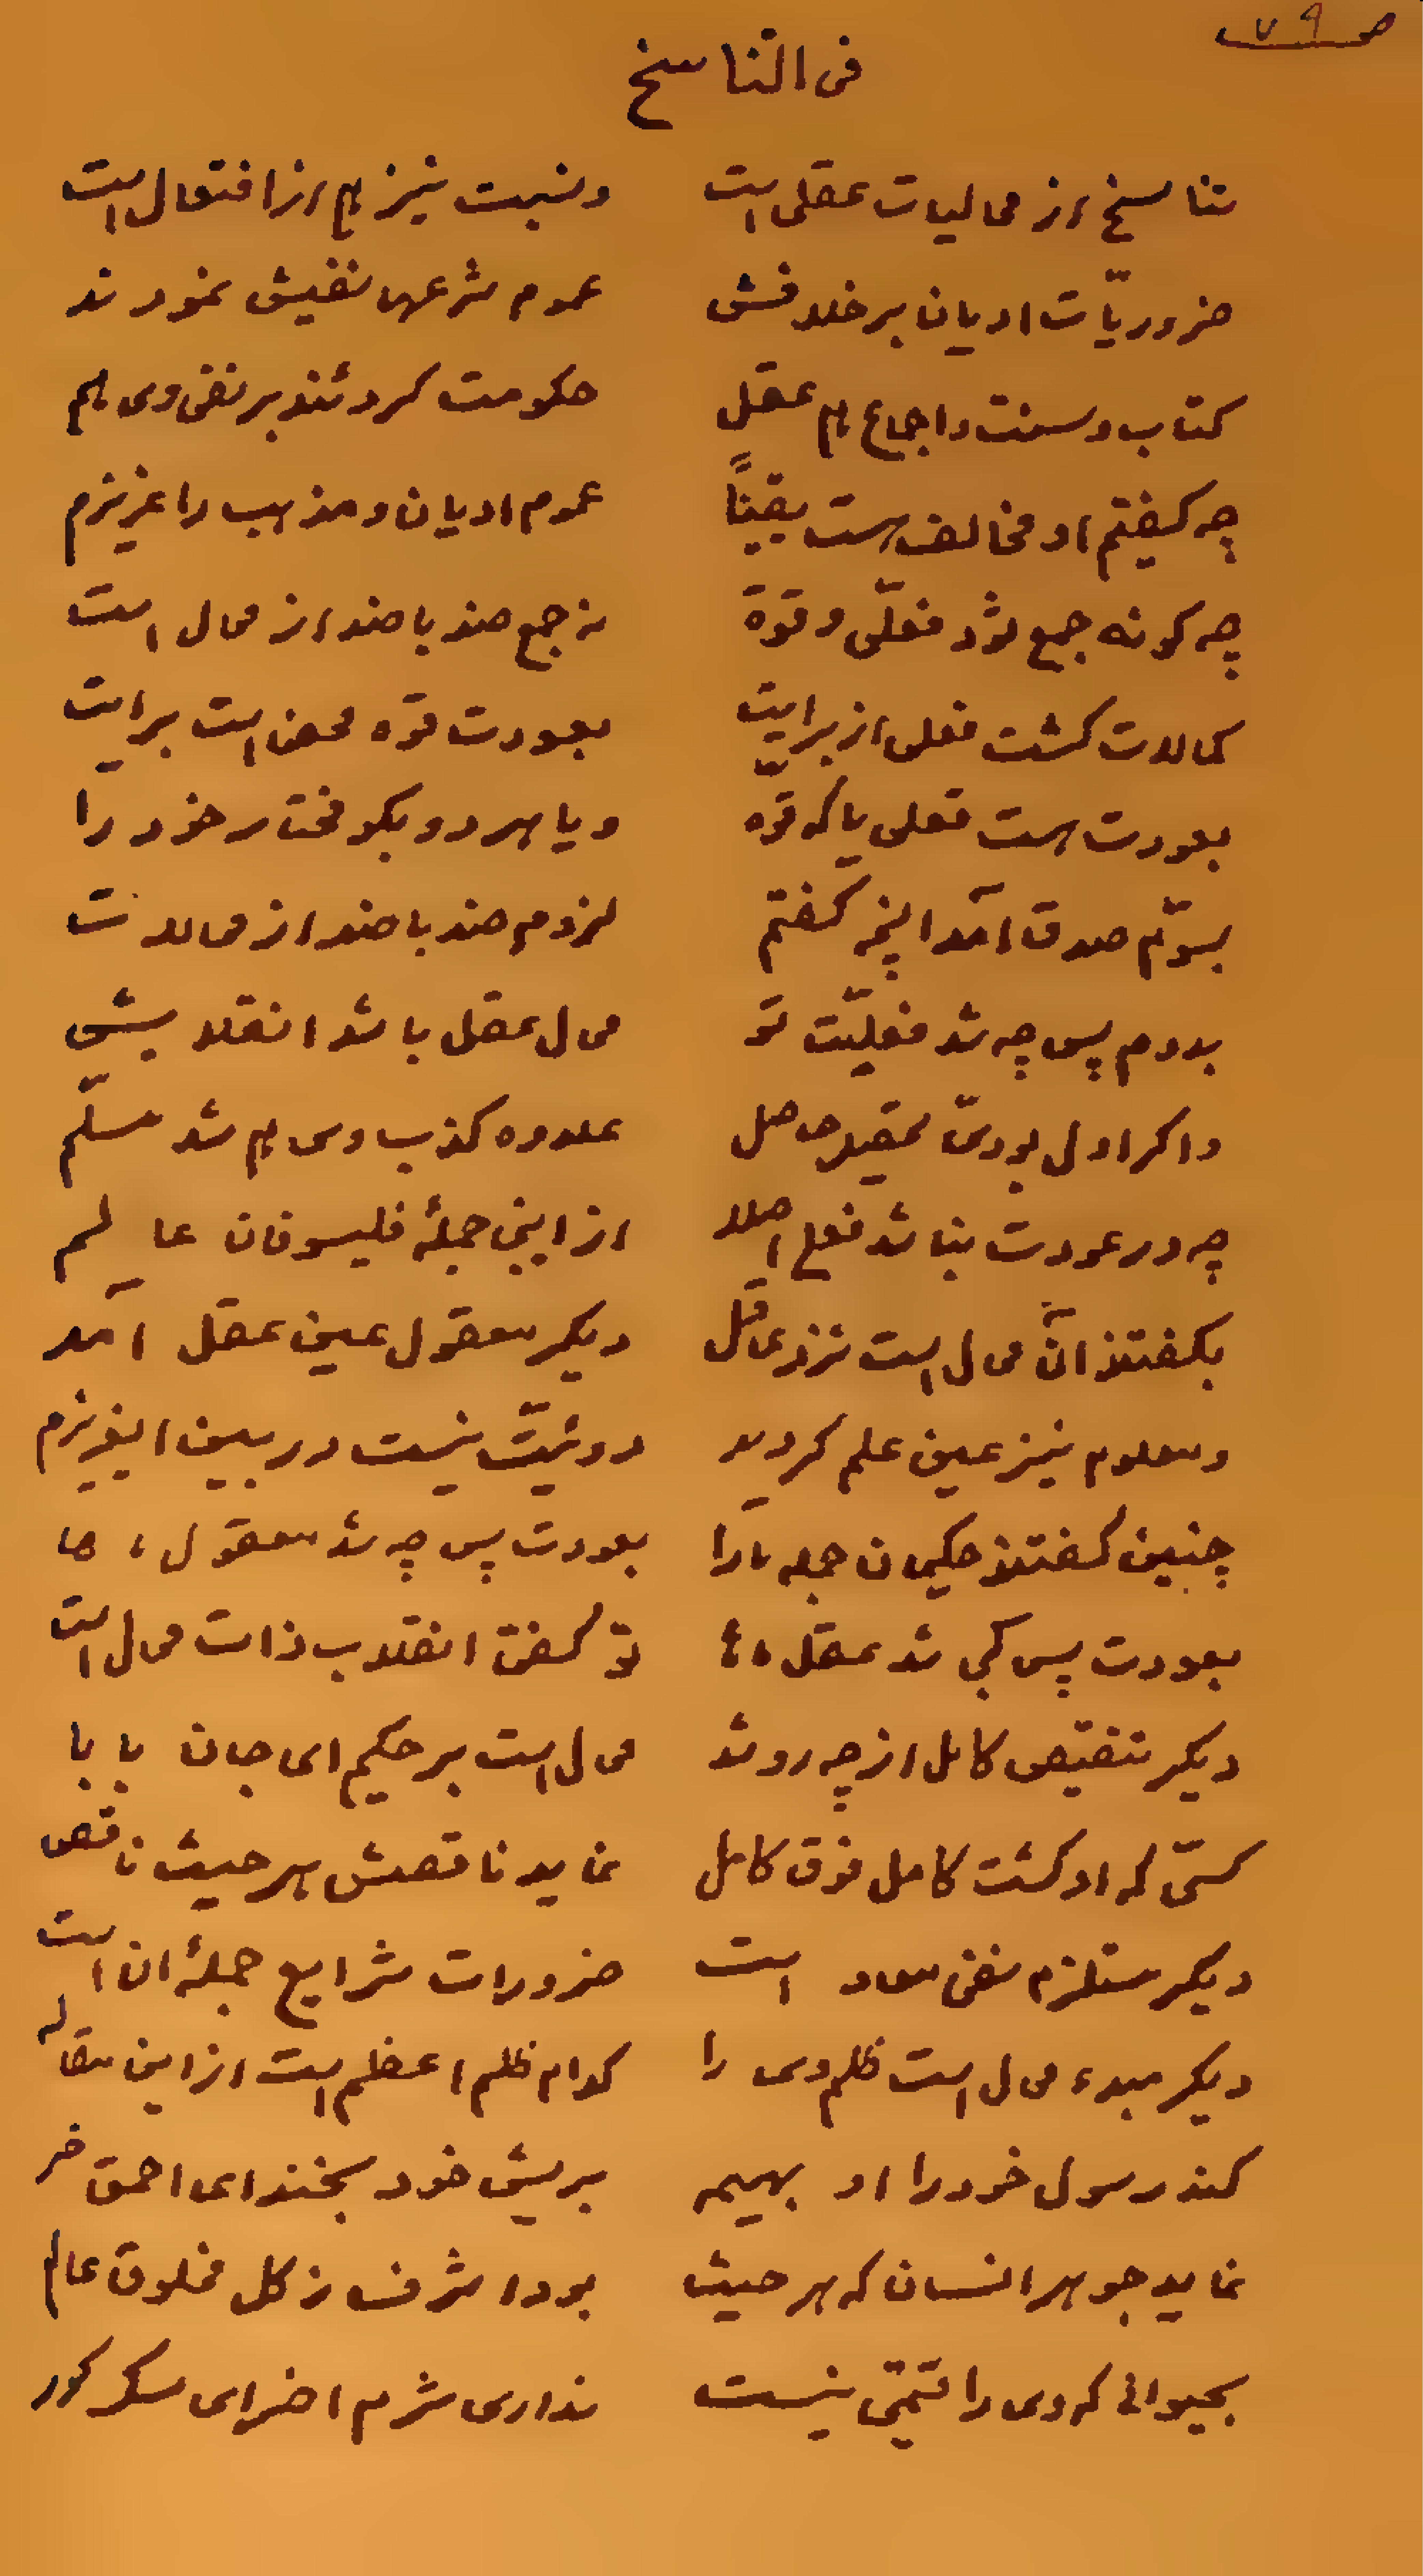 ص ٧٩
فی التناسخ
تناسخ از محالیات عقلی است ونسبت نیز هم از افتعال است
ضروریّات ادیان بر خلافش عموم شرعها نفیش نمودند
کتاب وسنت واجماع هم عقل حکومت کردند بر نفی وی هم
چه گفتم او مخالف هست یقیناً عموم ادیان ومذهب را عزیزم
چه گونه جمع شد فعلی وقوة نه جمع ضد با ضد از محال است
کمالات گشت فعلی از برایت بعودت قوّه محض است برایت
بعودت هست فعلی یا که قوّه ویا هر دو بگو مختار خود را
بسوّم صدق آمد آنچه گفتم لزوم ضد با ضد از محالات
بدوم پس چه شد فعلیّت تو محال عقل باشد انقلابش
واگر اول بودی حاصل علاوه کذب وی هم شد مسلّم
چه در عودت نباشد فعلی اصلا از این جملهٔ فلیسوفان عالم
بگفتند آن محال است نزد عاقل دیگر معقول عین عقل آمد
ومعلوم نیز عین علم گردید دوئیّت نیست در بین ایعزیزم
چنین گفتند حکیمان جمله ما را بعودت پس چه شد معقول ، ها
بعودت پس کجا شد عقل تو گفتی انقلاب ذات محال است
دیگر تنقیص کامل از چه رو شد محال است بر حکیم ای جان بابا
کسی که او گشت کامل فوق کامل نماید ناقصش هر حیث ناقص
دیگر مستلزم نفی معاد است ضرورات شرایع جملهٔ ان است
دیگر مبدء محال است ظلم وی را کدام ظلم اعظم است از این مقاله
کند رسول خود را او بهیمه بریش خود بخند ای احمق خر
نماید جوهر انسان که هر حیث بود اشرف ز کل مخلوق عالم
بحیوانی که وی را قیمتی نیست نداری شرم اخر ای کور